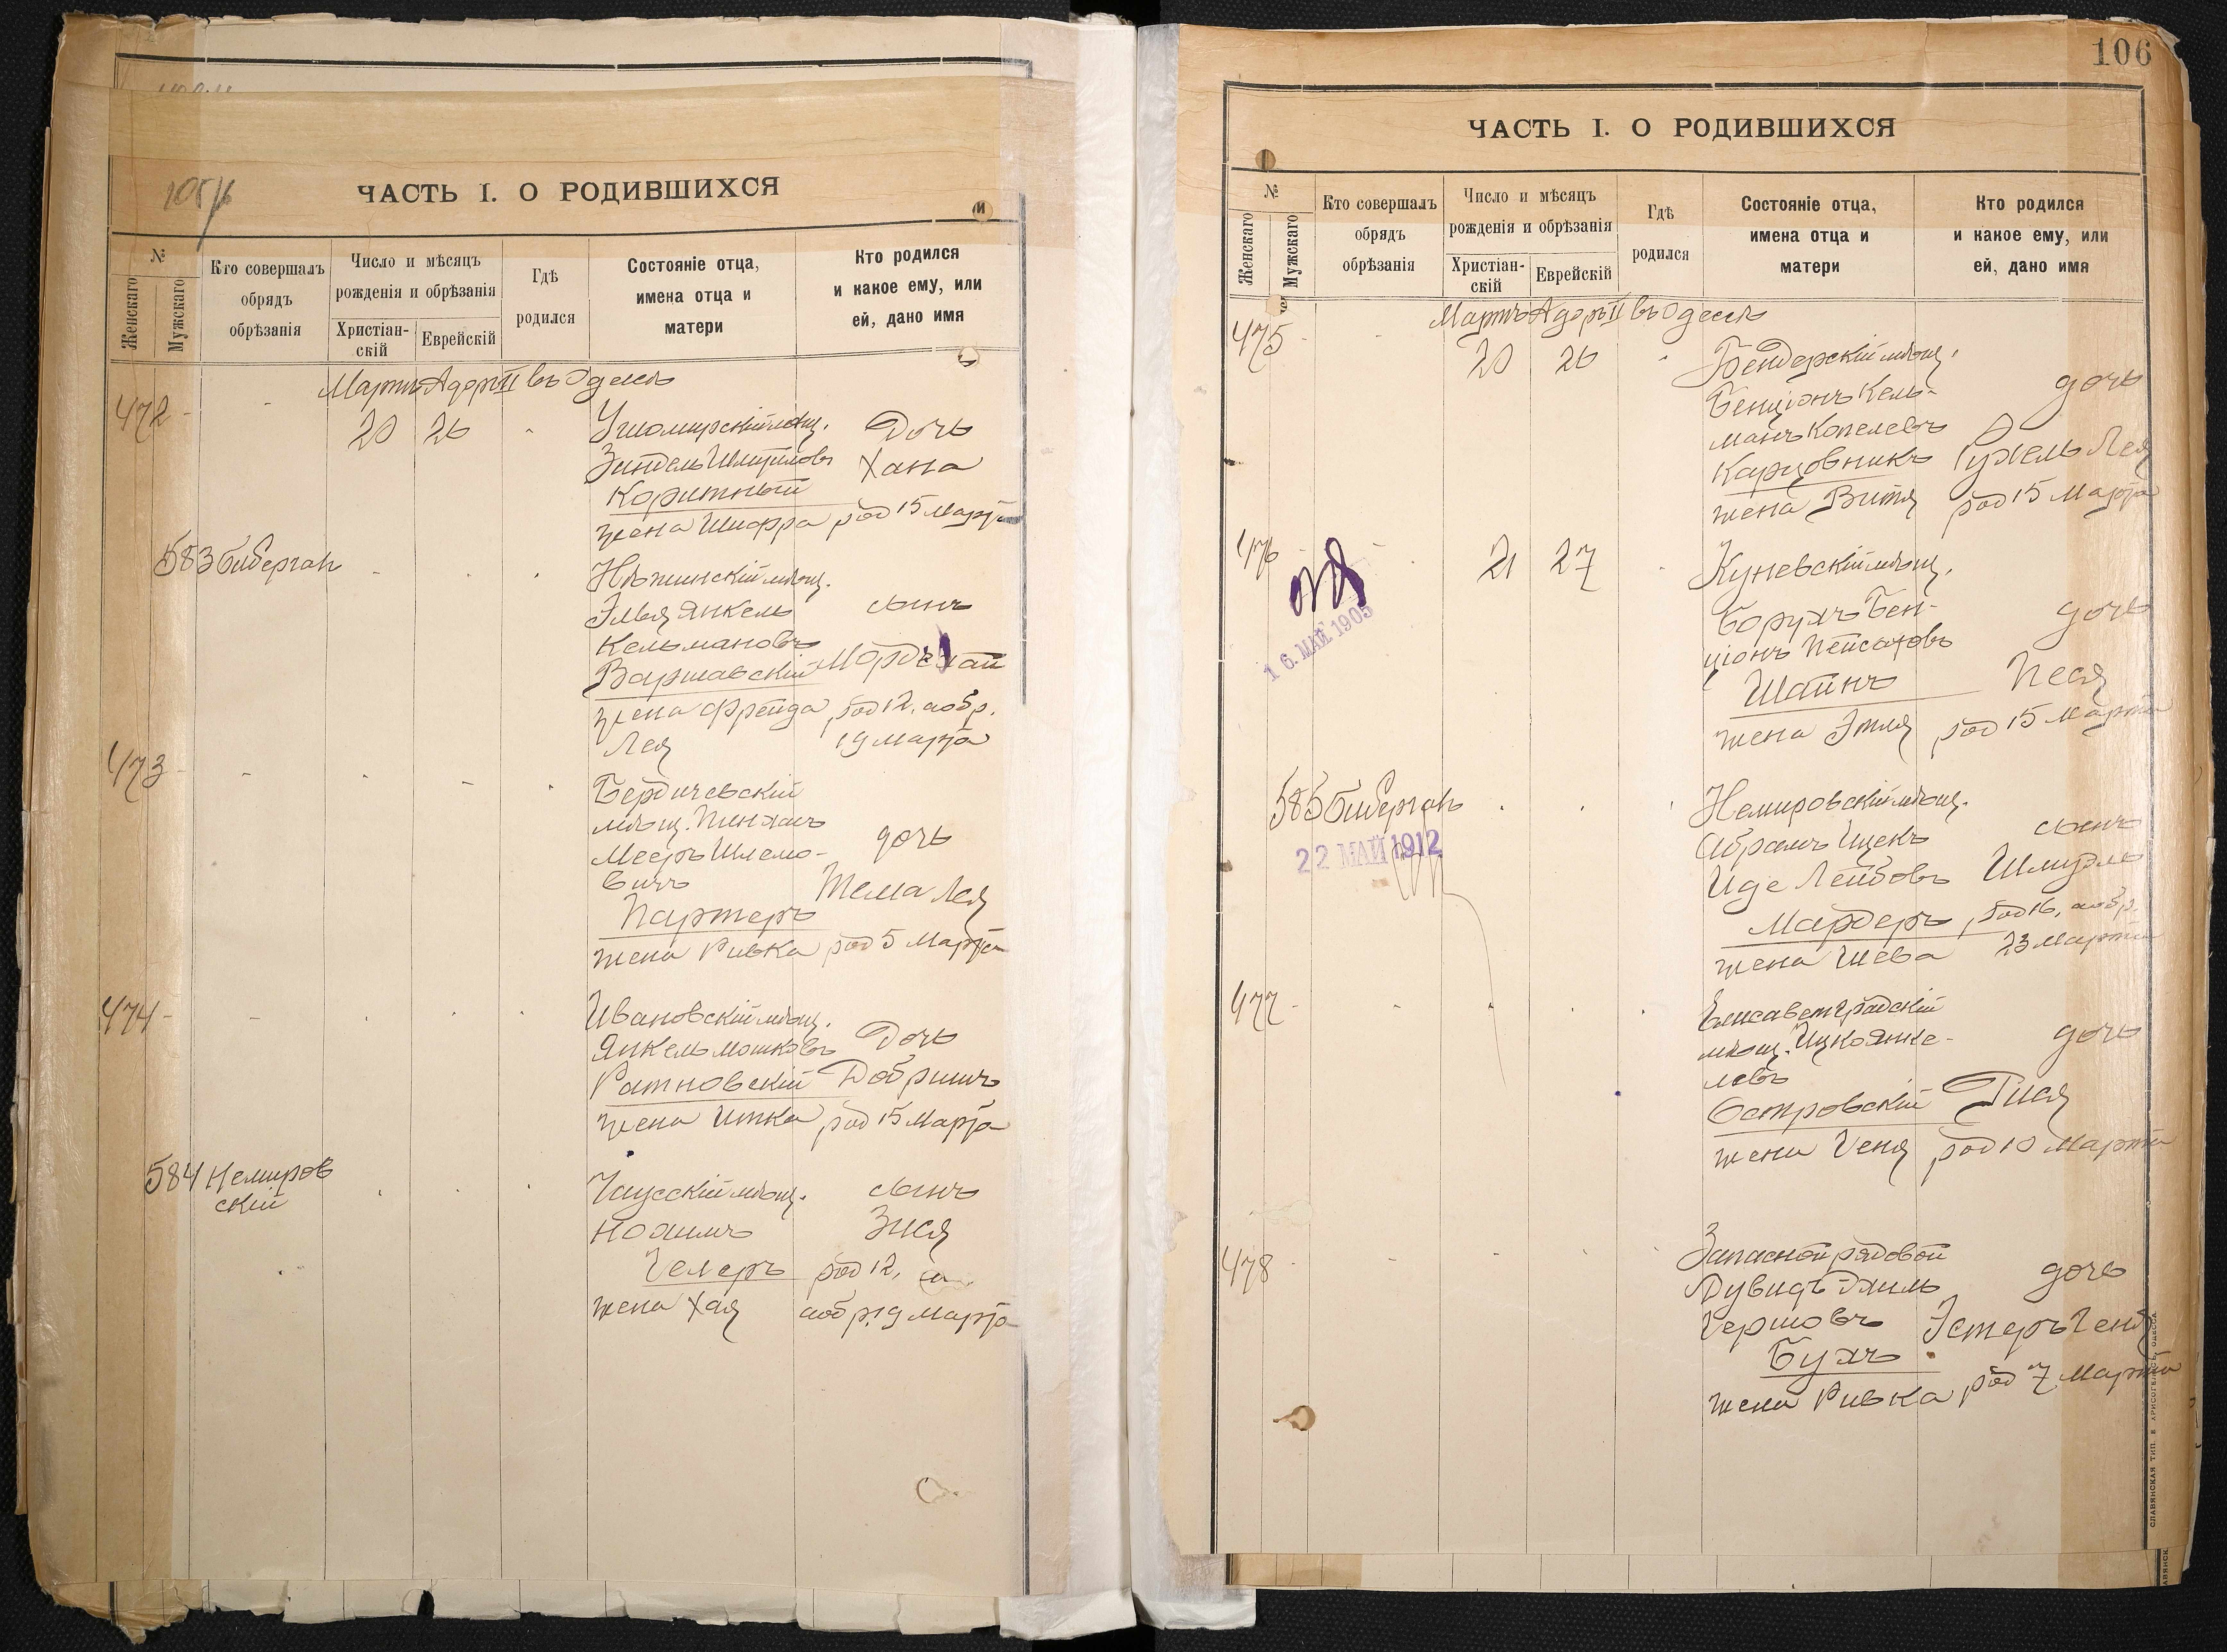 105/б
ЧАСТЬ I. О РОДИВШИХСЯ
и
№
Женскаго
Мужскаго
Кто совершалъ
обрядъ
обрѣзанія
Число и мѣсяцъ
рожденія и обрѣзанія
Христіан-
скій
Еврейскій
Гдѣ
родился
Состояніе отца,
имена отца и
матери
Кто родился
и какое ему, или
ей, дано имя
Мартъ Адоръ II въ Одессѣ
472 - - 20 26 -
Ушомирскій мѣщ. Дочь
Зиндель Шмуиловъ Хана
Коритный
жена Шифра род 15 Марта
583 Биберган
Нѣжинскій мѣщ.
Элья Янкель сынъ
Кельмановъ
Варшавскій Мордехай
жена Фрейда род 12, а обр.
Лея 19 Марта
473
Бердичевскій
мѣщ. Пинхасъ
Мееръ Шлемо- дочь
вичъ
Партеръ Тема Лея
жена Ривка род 5 Марта
474
Ивановскій мѣщ.
Янкель Мошковъ Дочь
Ратновскій Добришъ
жена Итка род 15 Марта
584 Немиров
скій
Чаусскій мѣщ. сынъ
Нохимъ Зися
Гелеръ род 12,
жена Хая а обр. 19 Марта
106
ЧАСТЬ I. О РОДИВШИХСЯ
№
Женскаго
Мужскаго
Кто совершалъ
обрядъ
обрѣзанія
Число и мѣсяцъ
рожденія и обрѣзанія
Христіан-
скій
Еврейскій
Гдѣ
родился
Состояніе отца,
имена отца и
матери
Кто родился
и какое ему, или
ей, дано имя
Мартъ Адоръ II въ Одессѣ
475 - 20 26
Бендерскій мѣщ.
Бенціонъ Кель- дочь
манъ Копелевъ
Карцовникъ Рухель Лея
жена Витя род 15 Марта
476 21 27
Куневскій мѣщ.
Борухъ Бен- дочь
ціонъ Пейсаховъ
Шатнъ Песя
жена Этля род 15 Марта
16. МАЙ 1905
585 Биберган
22 МАЙ 1912
Немировскій мѣщ.
Абрамъ Ицекъ сынъ
Иде Лейбовъ Шмуль
Мардеръ род 16, а обр.
жена Шева 23 Марта
477
Елисаветградскій
мѣщ. Ицко Янке- дочь
левъ
Островскій Гися
жена Геня род 10 Марта
478
Запасной рядовой
Дувидъ Эхиль дочь
Гершовъ Эстеръ Геня
Бухъ
жена Ривка род 7 Марта
СЛАВЯНСКАЯ ТИП. Е. ХРИСОГЕЛОСЪ, ОДЕССА